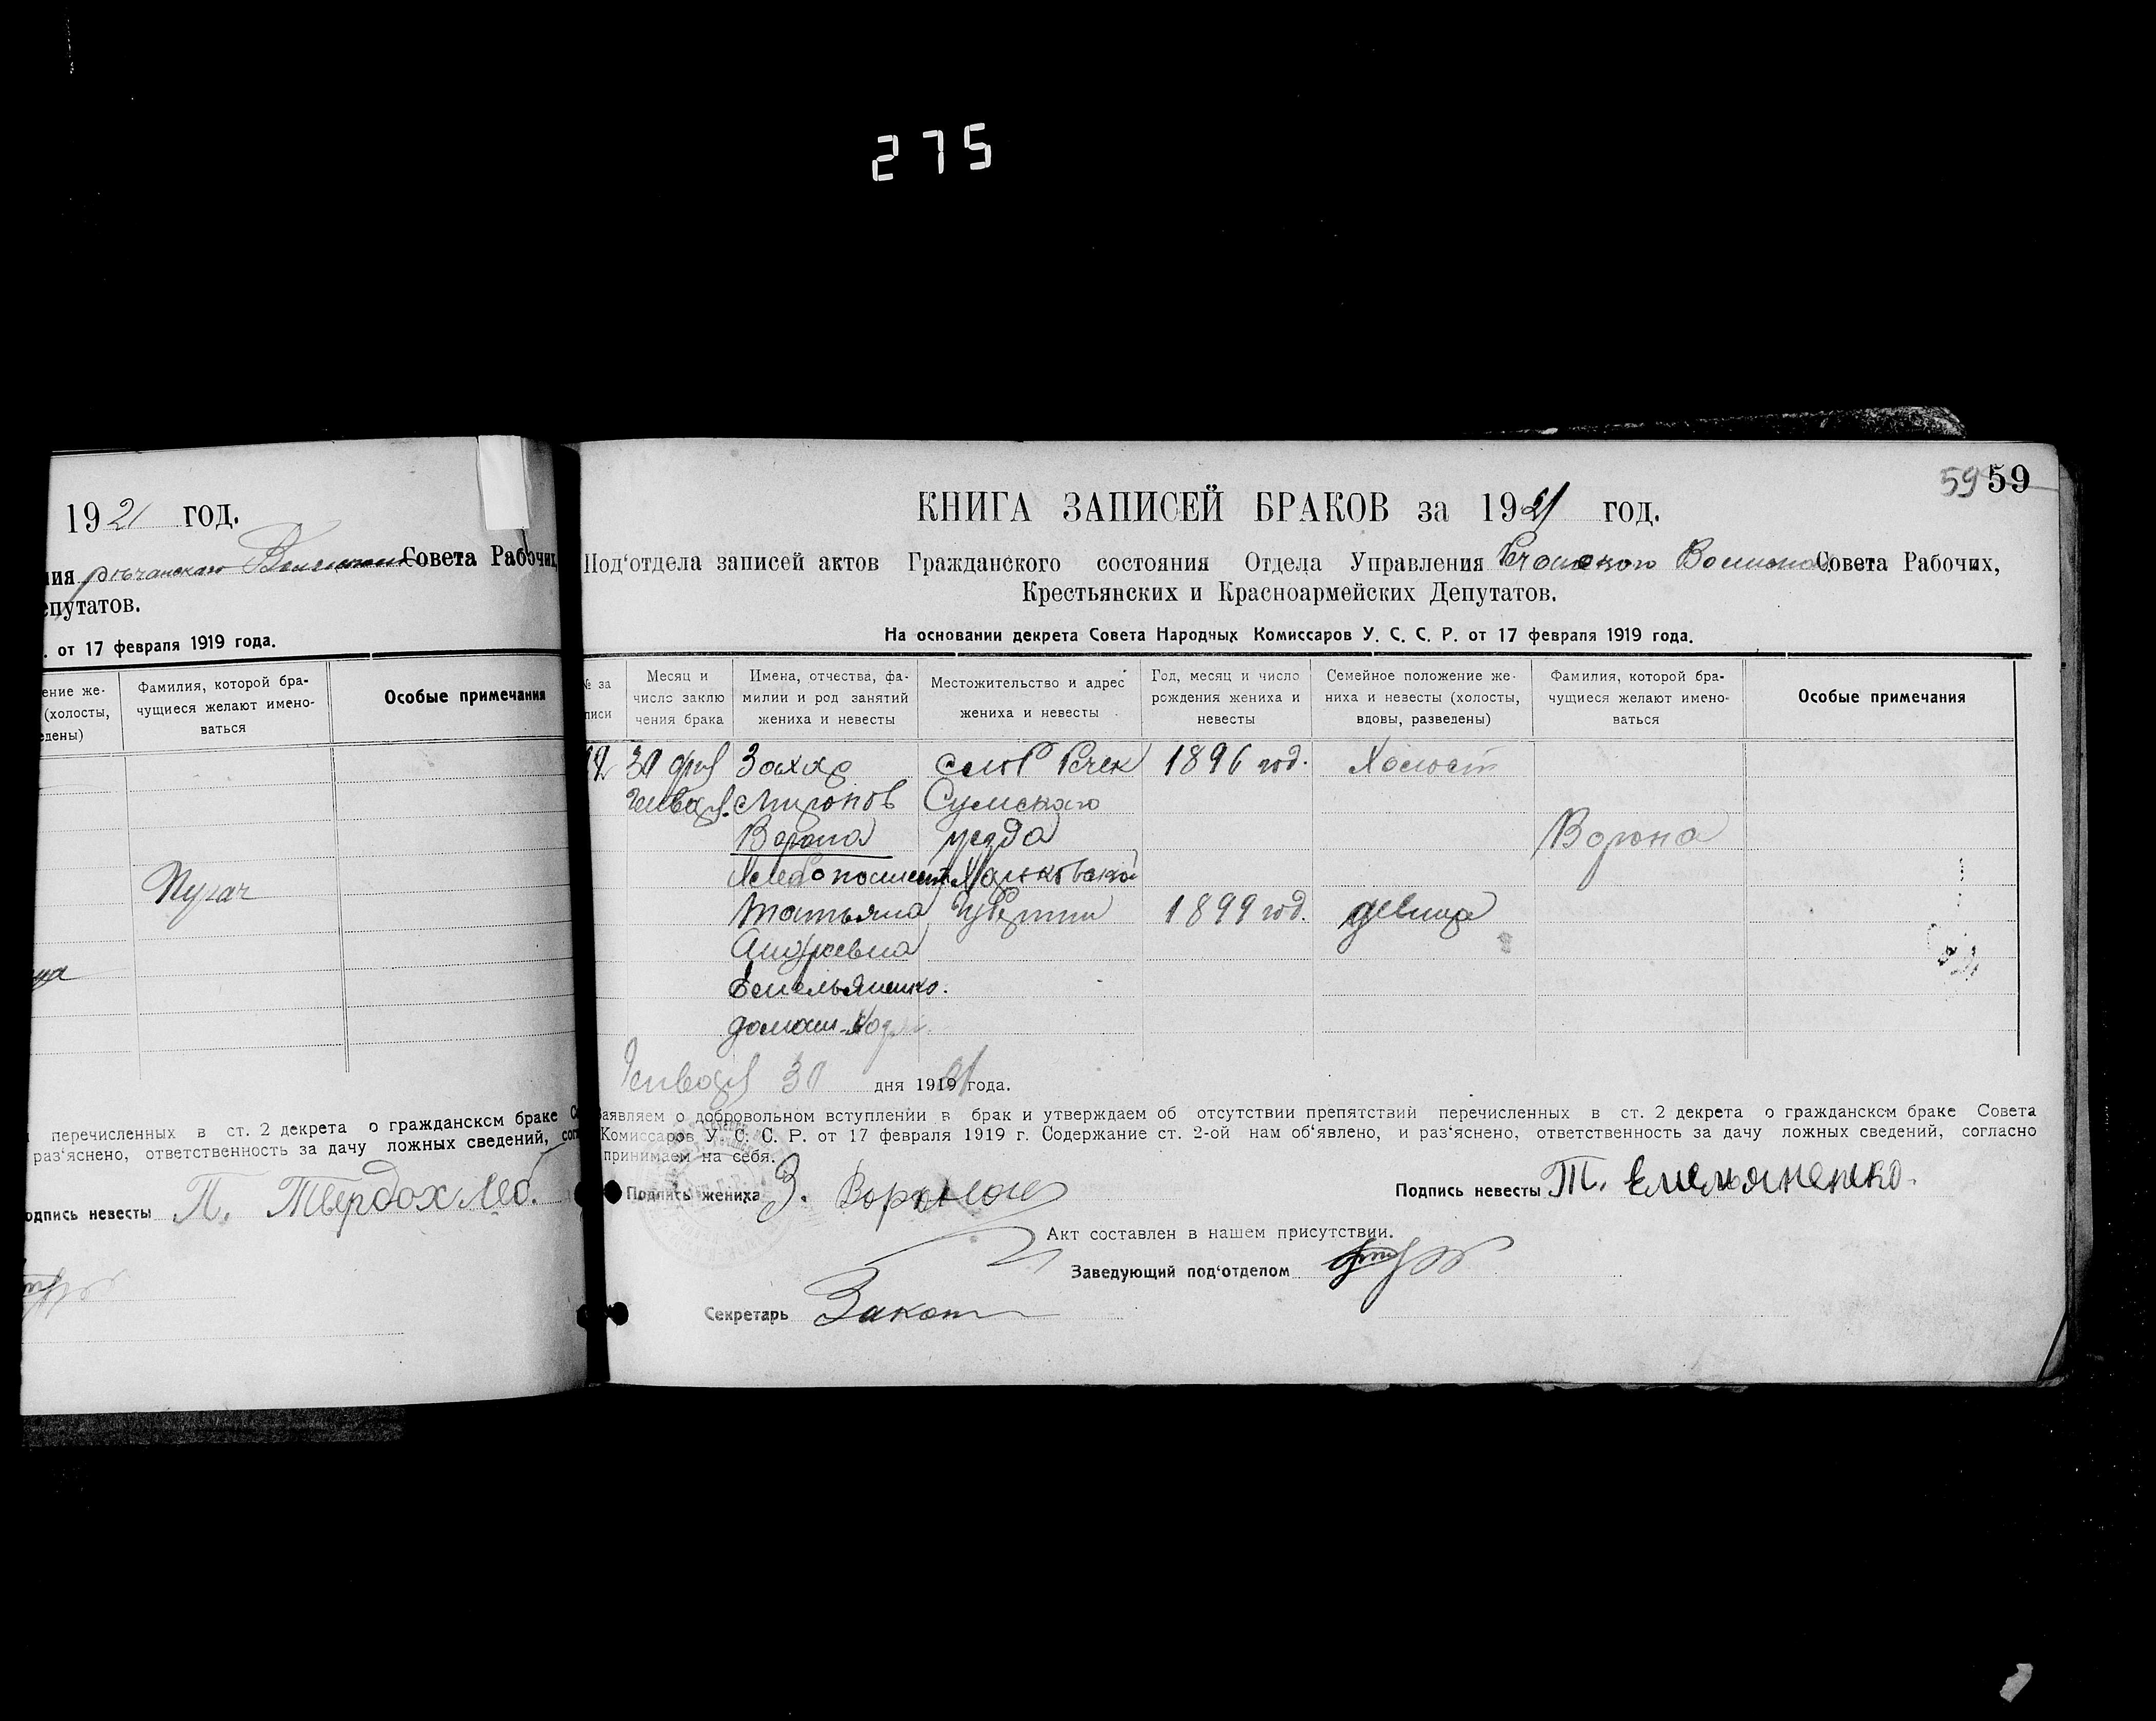 275
1921 год.
Совета Рабочих,
епутатов.
. от 17 февраля 1919 года.
ение же-
(холосты,
едены)
Фамилия, которой бра-
чущиеся желают имено-
ваться
Особые примечания
Пугач
перечисленных в ст. 2 декрета о гражданском браке
раз'яснено, ответственность за дачу ложных сведений,
одпись невесты П. Твердохлеб.
59 59
КНИГА ЗАПИСЕЙ БРАКОВ за 1921 год.
Под'отдела записей актов Гражданского состояния Отдела Управления Совета Рабочих,
Крестьянских и Красноармейских Депутатов.
На основании декрета Совета Народных Комиссаров У. С. С. Р. от 17 февраля 1919 года.
№ за
писи
Месяц и
число заклю
чения брака
Имена, отчества, фа-
милии и род занятий
жениха и невесты
Местожительство и адрес
жениха и невесты
Год, месяц и число
рождения жениха и
невесты
Семейное положение же-
ниха и невесты (холосты,
вдовы, разведены)
Фамилия, которой бра-
чущиеся желают имено-
ваться
Особые примечания
12 30 дня Захар слоб Речек 1896 год. Холост
Января Миронов Сумского
Ворона уезда Ворона
Хлебопашест Харьковской
Татьяна Губернии 1899 год. девица
Андреевна
Емельяненко.
домаш.
Января 30 дня 1921 года.
Заявляем о добровольном вступлении в брак и утверждаем об отсутствии препятствий перечисленных в ст. 2 декрета о гражданском браке Совета
Комиссаров У. С. С. Р. от 17 февраля 1919 г. Содержание ст. 2-ой нам об'явлено, и раз'яснено, ответственность за дачу ложных сведений, согласно
принимаем на себя.
Подпись жениха З. Подпись невесты Т. Емельяненко.
Акт составлен в нашем присутствии.
Заведующий под'отделом
Секретарь